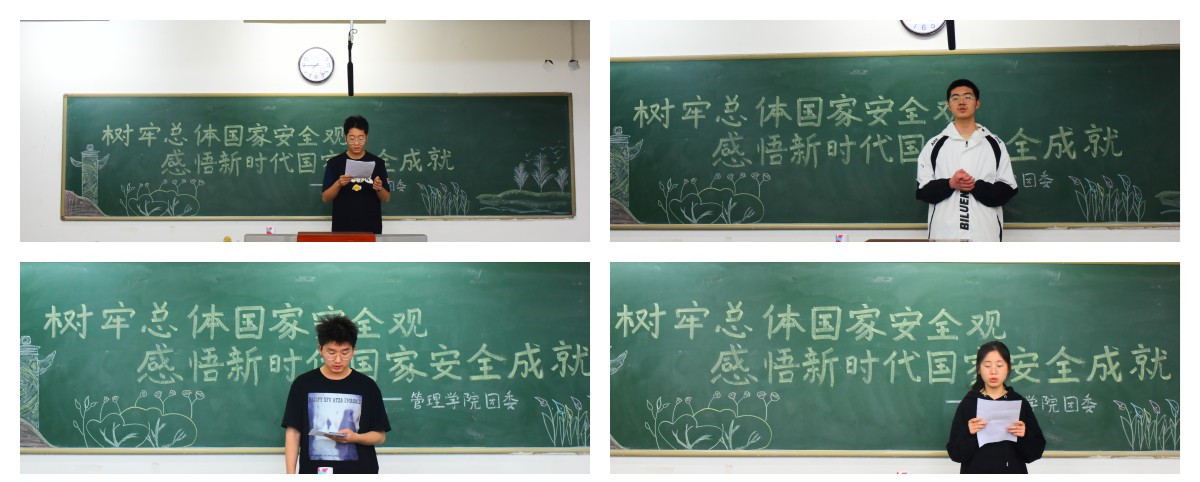 树牢总体国家安全观
感悟新时代国 安全成就
团委
树牢总体国家安全观
感悟新时代国 全成就
团委
BILUEN
树牢总体国家安全观
感悟新时代国家安全成就
——管理学院团委
树牢总体国家安全观
感悟新时代国家安全成就
学院团委